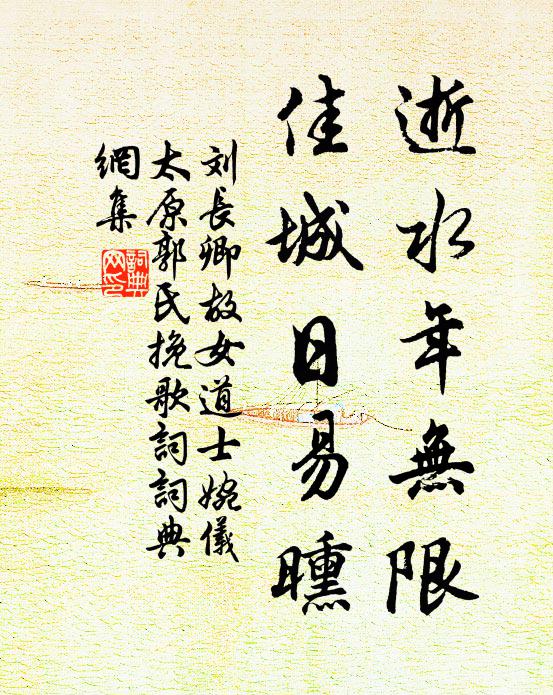 逝水年無限
佳城日易曛
刘長卿故女道士婉儀
太原郭氏挽歌詞詞典
網集
詞典
网印